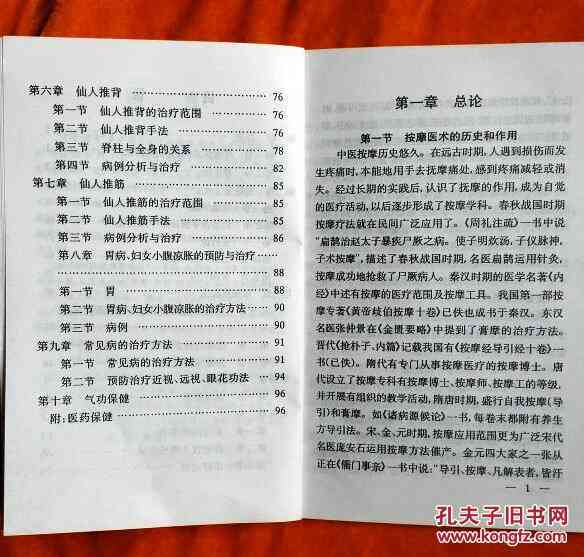 第六章 仙人推背 …………………… 76
第一节 仙人推背的治疗范围 ………… 76
第二节 仙人推背手法 ………………… 76
第三节 脊柱与全身的关系 …………… 78
第四节 病例分析与治疗 ……………… 82
第七章 仙人推筋 …………………… 85
第一节 仙人推筋的治疗范围 ………… 85
第二节 仙人推筋手法 ………………… 85
第三节 病例分析与治疗 ……………… 86
第八章 胃病、妇女小腹凉胀的预防与治疗 ……
…………………… 88
第一节 胃 …………………… 88
第二节 胃病、妇女小腹凉胀的治疗方法 …… 90
第三节 病例 …………………… 90
第九章 常见病的治疗方法 …………… 91
第一节 常见病的治疗方法 …………… 91
第二节 预防治疗近视、远视、眼花功法 …… 94
第十章 气功保健 …………………… 96
附:医药保健 …………………… 96
第一章 总论
第一节 按摩医术的历史和作用
中医按摩历史悠久。在远古时期,人遇到损伤而发
生疼痛时,本能地用手去抚摩痛处,感到疼痛减轻或消
失。经过长期的实践后,认识了抚摩的作用,成为自觉
的医疗活动,以后逐步形成了按摩学科。春秋战国时期
按摩疗法就在民间广泛应用了。《周礼注疏》一书中说
“扁鹊治赵太子暴疾尸厥之病。使子明炊汤,子仪脉神,
子术按摩”,描述了春秋战国时期,名医扁鹊运用针灸、
按摩成功地抢救了尸厥病人。秦汉时期的医学名著《内
经》中述有按摩的医疗范围及按摩工具。我国第一部按
摩专著《黄帝歧伯按摩十卷》已佚也成书于秦汉。东汉
名医张仲景在《金匮要略》中提到了膏摩的治疗方法。
晋代《抱朴子、内篇》记载我国有《按摩经导引经十卷》一
书(已佚)。隋代有专门从事按摩医疗的按摩博士。唐
代设立了按摩专科有按摩博士、按摩师、按摩工的等级,
并开展有组织的教学活动,隋唐时期,盛行自我按摩(导
引)和膏摩。如《诸病源候论》一书,每卷末都附有养生
方导引法。宋、金、元时期,按摩应用范围更为广泛宋代
名医庞安石运用按摩方法催产。金元四大家之一张从
正在《儒门事亲》一书中说:“导引、按摩、凡解表者,皆汗
— 1 —
孔夫子旧书网
www.kongfz.com